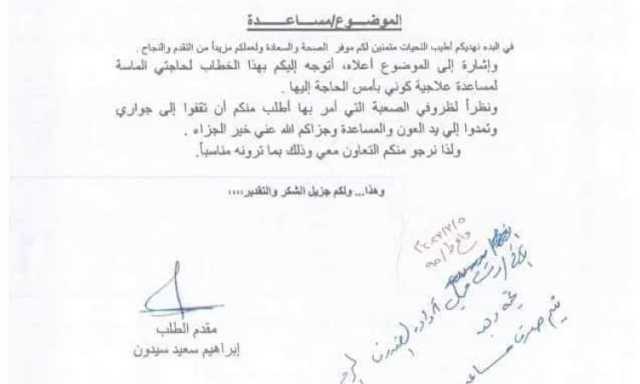 الموضـــوع/مســـاعـــدة
في البدء نهديكم أطيب التحيات متمنين لكم موفر الصحة والسعادة ولعملكم مزيداً من التقدم والنجاح .
وإشارة إلى الموضوع أعلاه، أتوجه إليكم بهذا الخطاب لحاجتي الماسة
لمساعدة علاجية كوني بأمس الحاجة إليها .
ونظراً لظروفي الصعبة التي أمر بها أطلب منكم أن تقفوا إلى جواري
وتمدوا إلي يد العون والمساعدة وجزاكم الله عني خير الجزاء .
ولذا نرجو منكم التعاون معي وذلك بما ترونه مناسباً.
وهذا... ولكم جزيل الشكر والتقدير،،،،
مقدم الطلب
إبراهيم سعيد سيدون